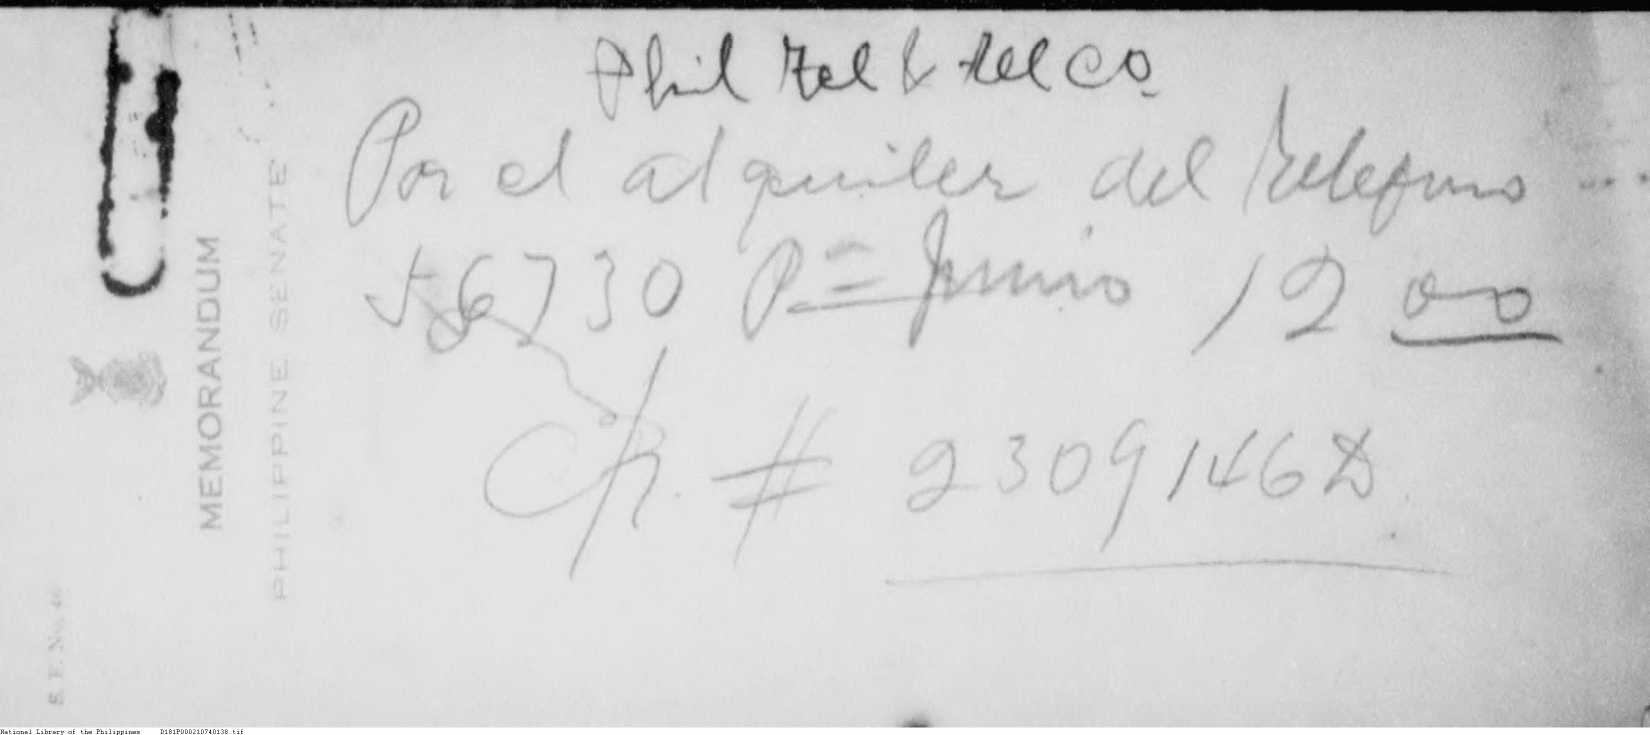 Phil Tel & Tel Co.
Por el alquiler del telefono ...
56730 Pª= Junio 12 00
CR. # 2309146D
MEMORANDUM
PHILIPPINE SENATE
S. F. No. 46
National Library of the Philippines D181P000210740138.tif